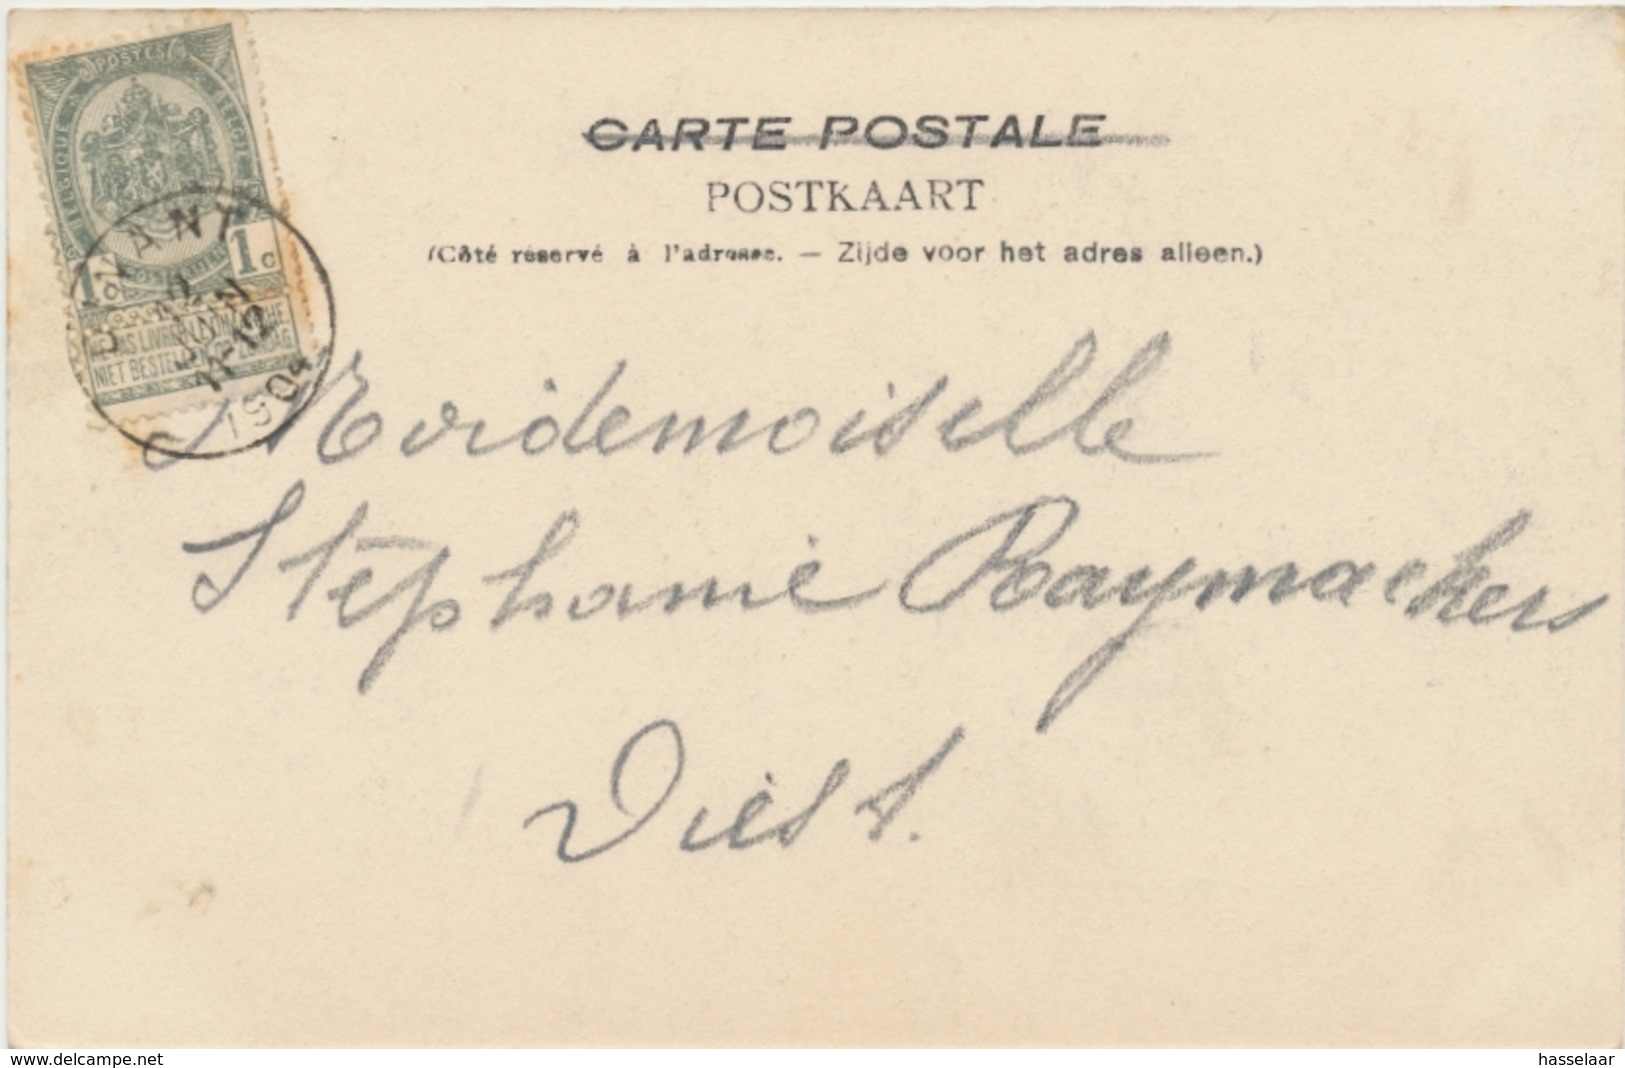 POSTES
BELGIQUE
BELGIË
1c
1c
NE PAS LIVRER LE DIMANCHE
NIET BESTELLEN OP ZONDAG
12
JUIN
11-12
1904
CARTE POSTALE
POSTKAART
(Côté réservé à l'adresse. — Zijde voor het adres alleen.)
Mademoiselle
Stéphanie Raymackers
Diest.
www.delcampe.net
hasselaar